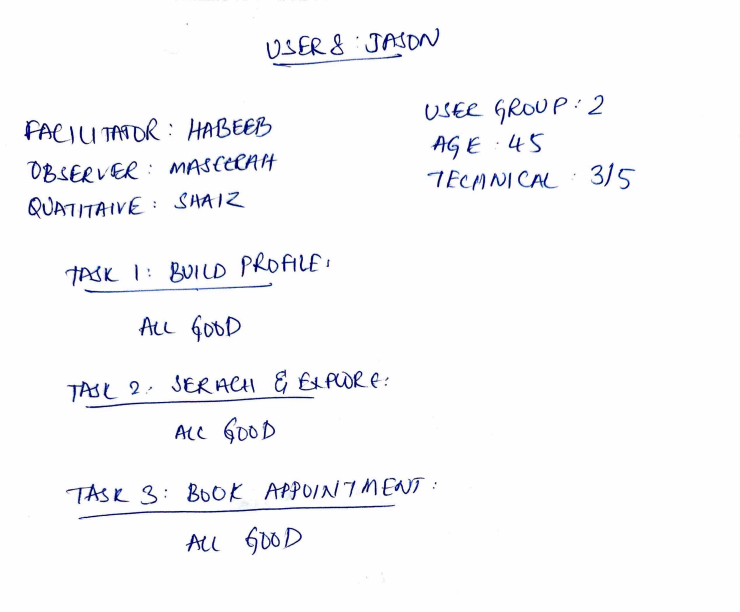 USER 8 : JASON
FACILITATOR : HABEEB
OBSERVER :
QUATITAIVE : SHAIZ
USER GROUP : 2
AGE : 45
TECHNICAL : 3/5
TASK 1 : BUILD PROFILE :
ALL GOOD
TASK 2 : SERACH & EXPLORE :
ALL GOOD
TASK 3 : BOOK APPOINTMENT :
ALL GOOD